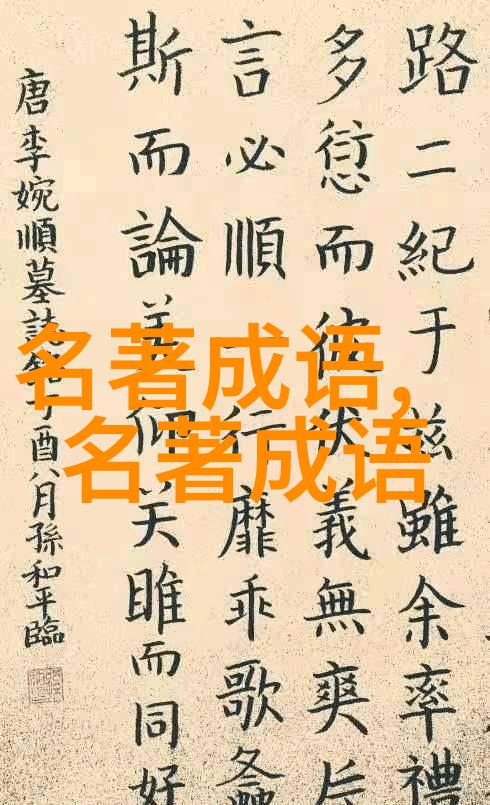 路二紀于茲雖余率禮
多愆而彼義無爽
言必順行靡乖歌螽
斯而論美仰关雎而同好
唐李婉順墓誌丁酉八月孫和平臨
名著成语,
名著成语